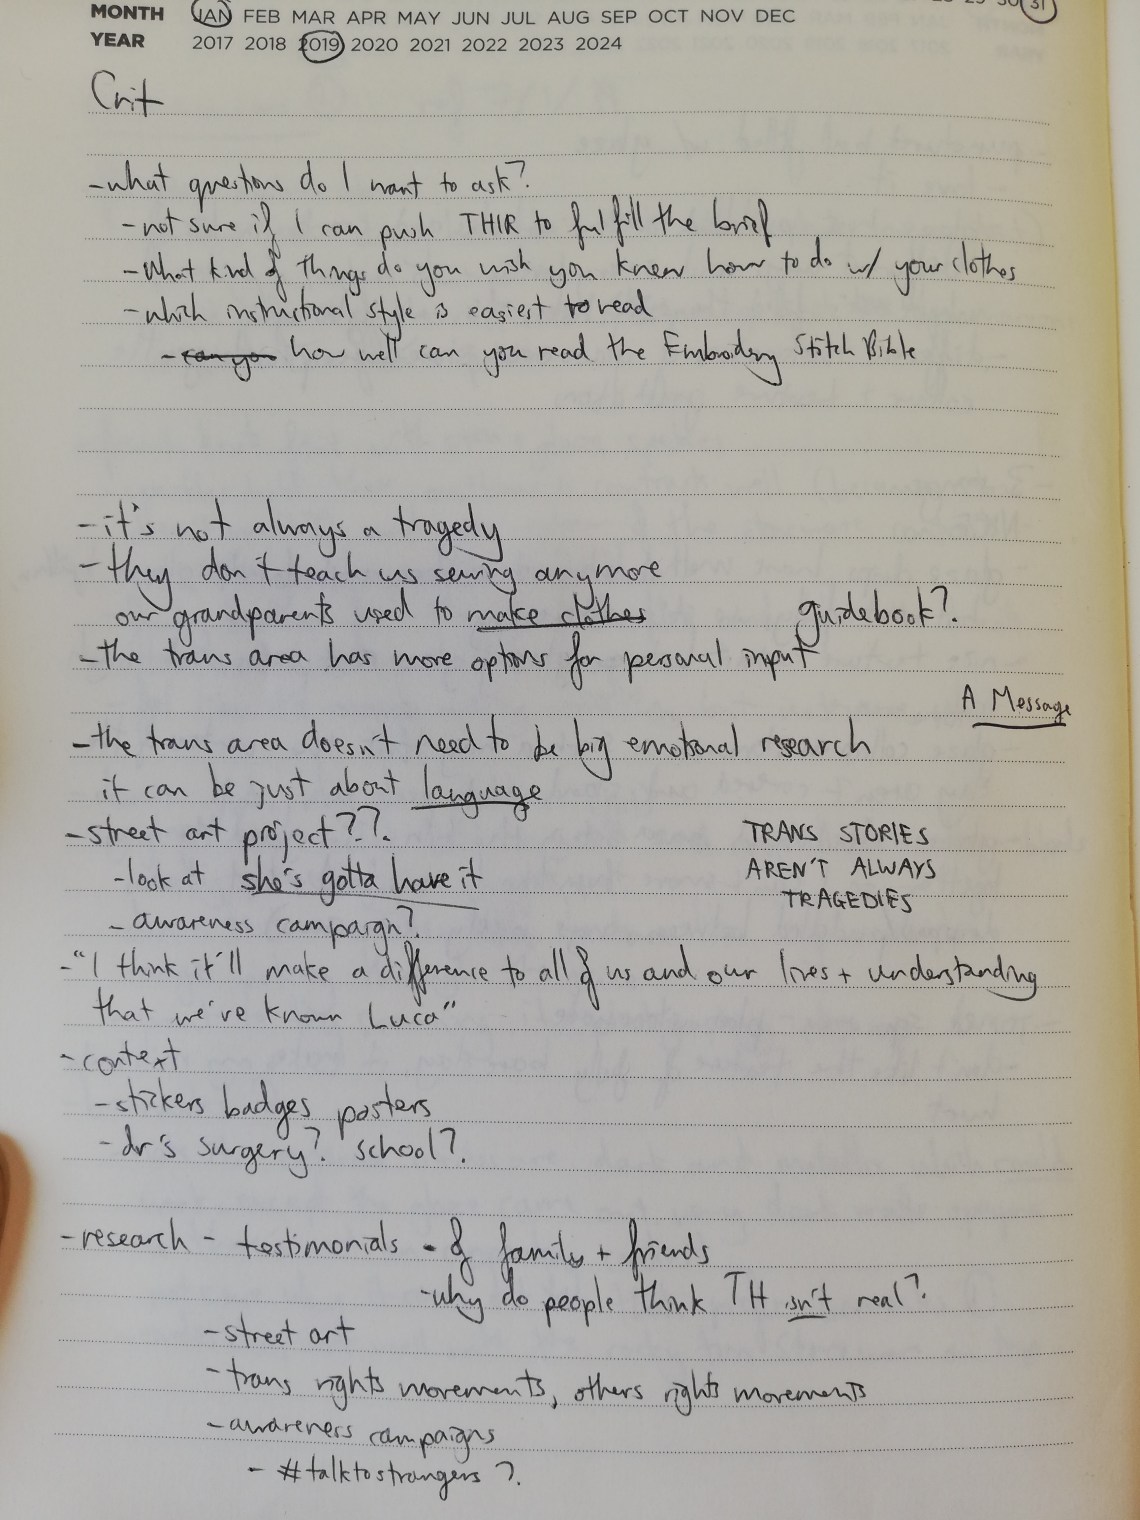 MONTH JAN FEB MAR APR MAY JUN JUL AUG SEP OCT NOV DEC
30 31
YEAR 2017 2018 2019 2020 2021 2022 2023 2024
Crit
- what questions do I want to ask?
- not sure if I can push THIR to fulfill the brief
- What kind of things do you wish you knew how to do w/ your clothes
- which instructional style is easiest to read
- can you how well can you read the Embroidery Stitch Bible
- it's not always a tragedy
- they don't teach us sewing anymore
our grandparents used to make clothes guidebook?
- the trans area has more options for personal input
A Message
- the trans area doesn't need to be big emotional research
it can be just about language
- street art project??
TRANS STORIES
AREN'T ALWAYS
TRAGEDIES
- look at she's gotta have it
- awareness campaign?
- "I think it'll make a difference to all of us and our lives + understanding
that we've known Luca"
- context
- stickers badges posters
- dr's surgery? school?
- research - testimonials - of family + friends
- why do people think TH isn't real?
- street art
- trans rights movements, others rights movements
- awareness campaigns
- #talktostrangers?